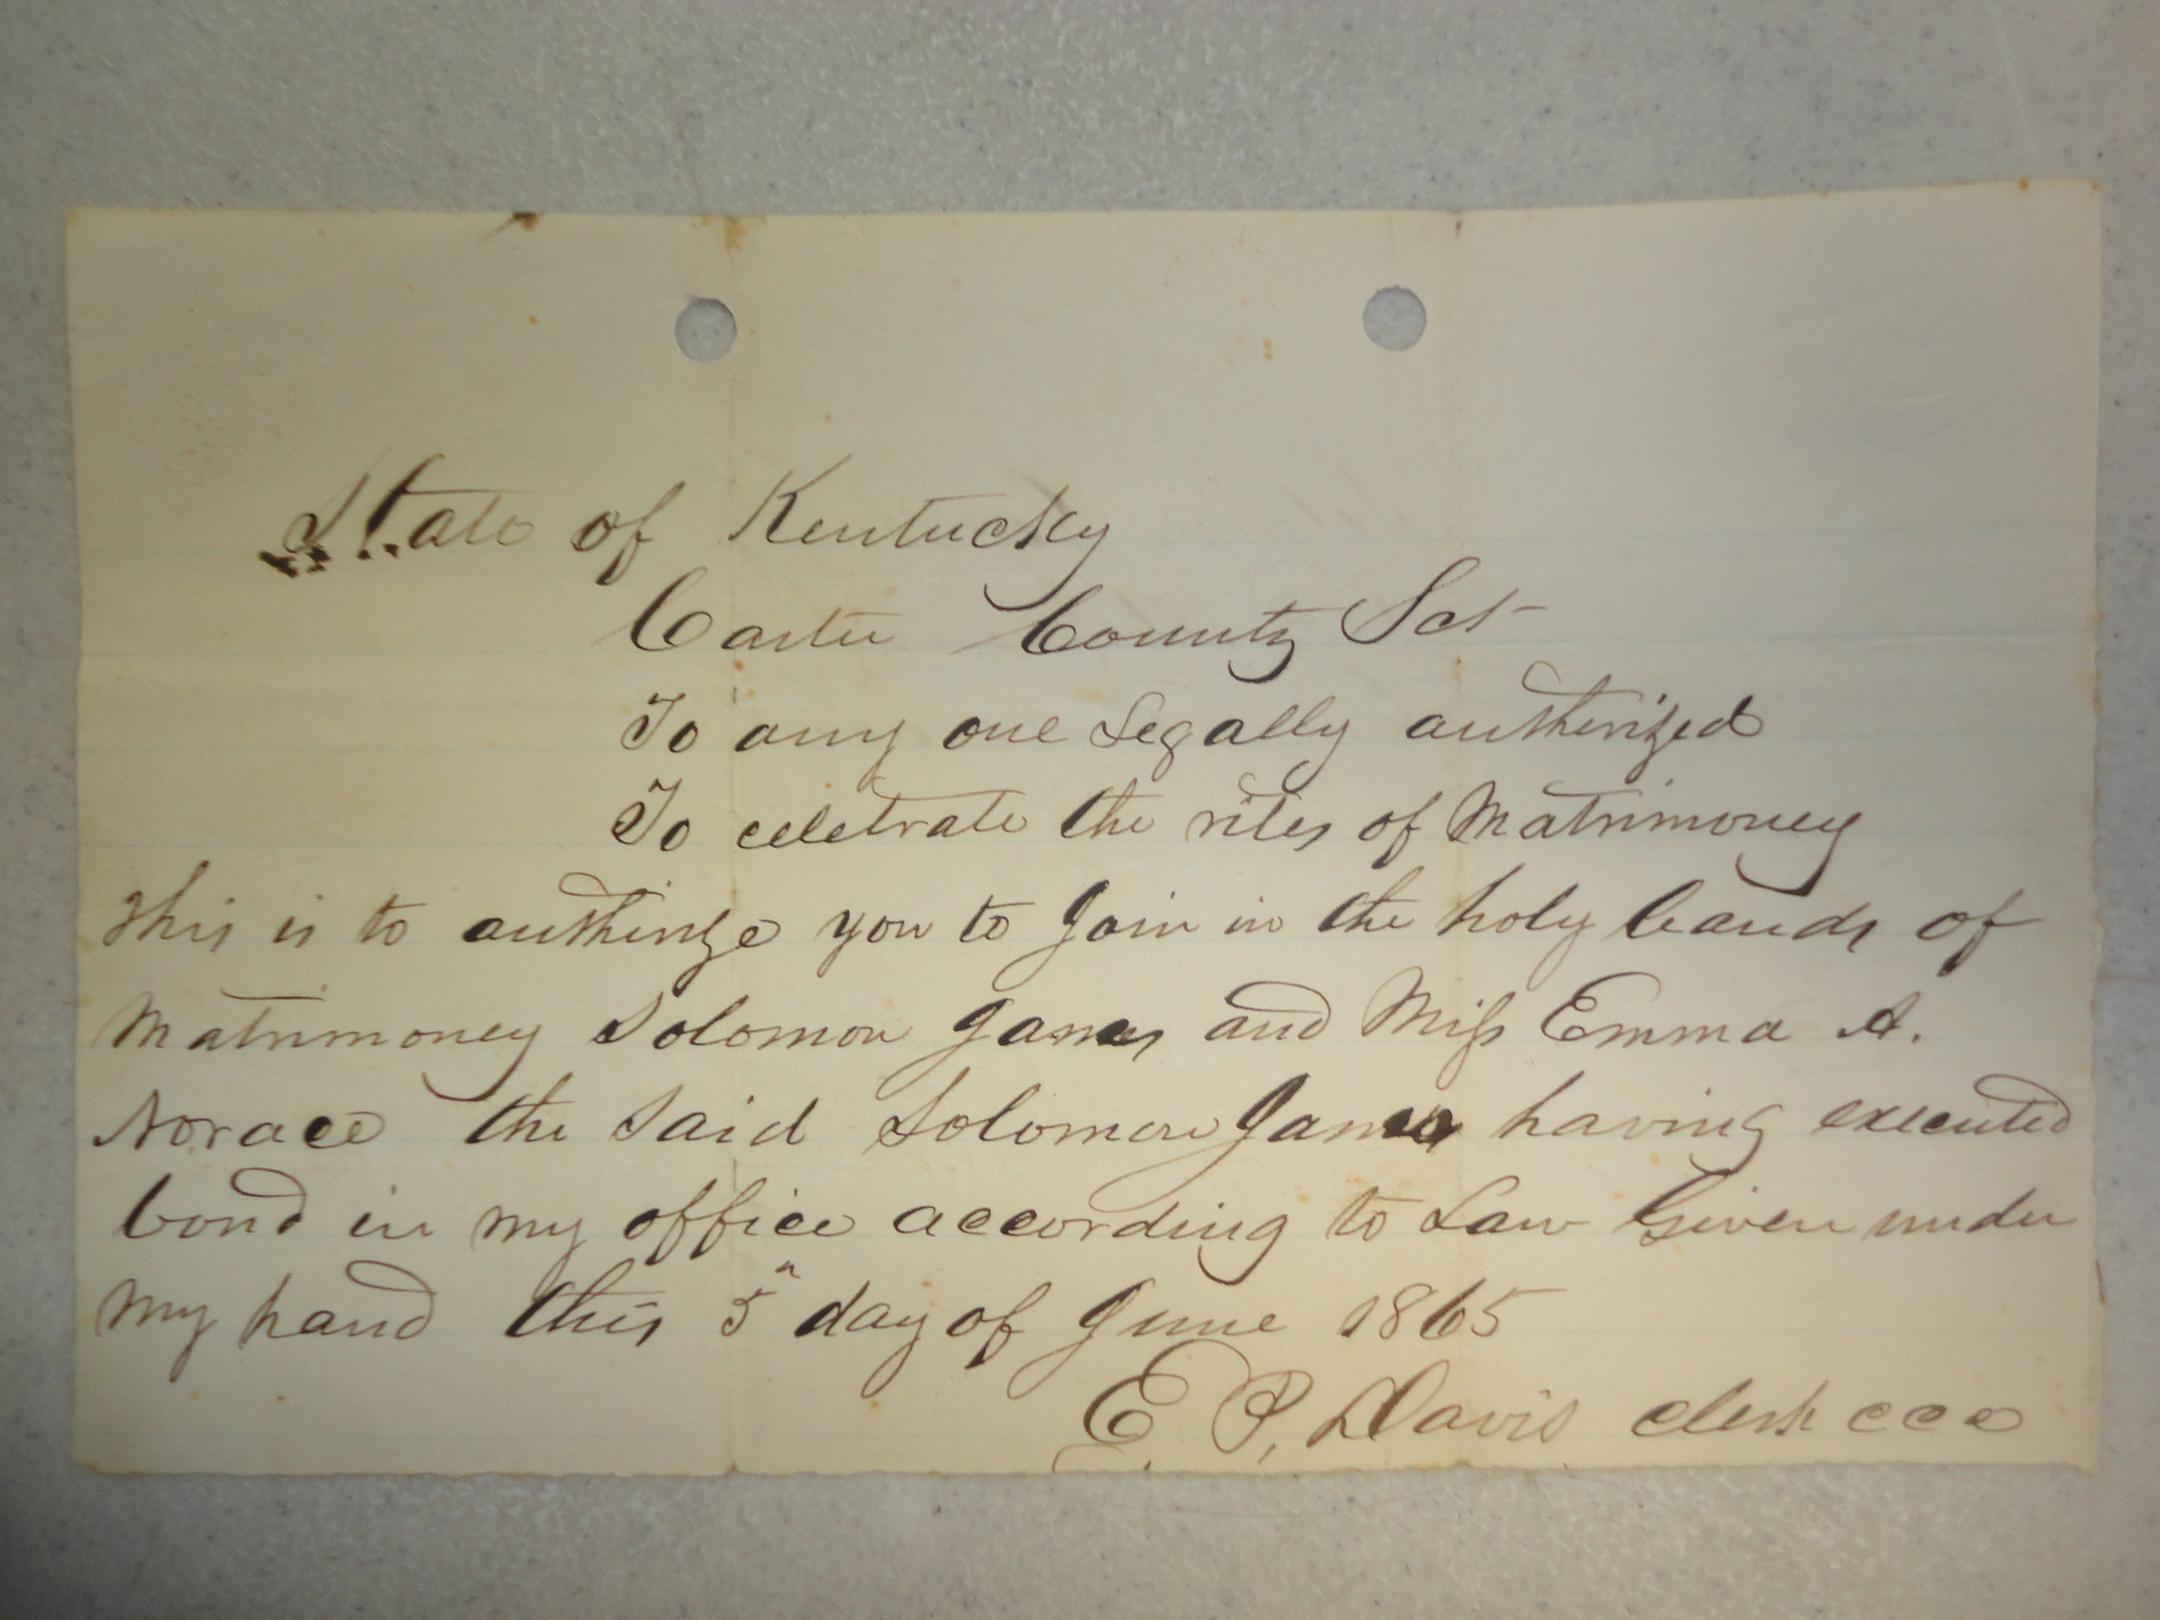 State of Kentucky
Carter County Sct
To any one Legally autherized
To celebrate the rites of Matrimoney
this is to autherize you to Join in the holy bands of
Matrimoney Solomon James and Miss Emma A.
Norace the said Solomon James having executed
bond in my office according to Law Given under
my hand this 5" day of June 1865
E. P. Davis clerk ccc